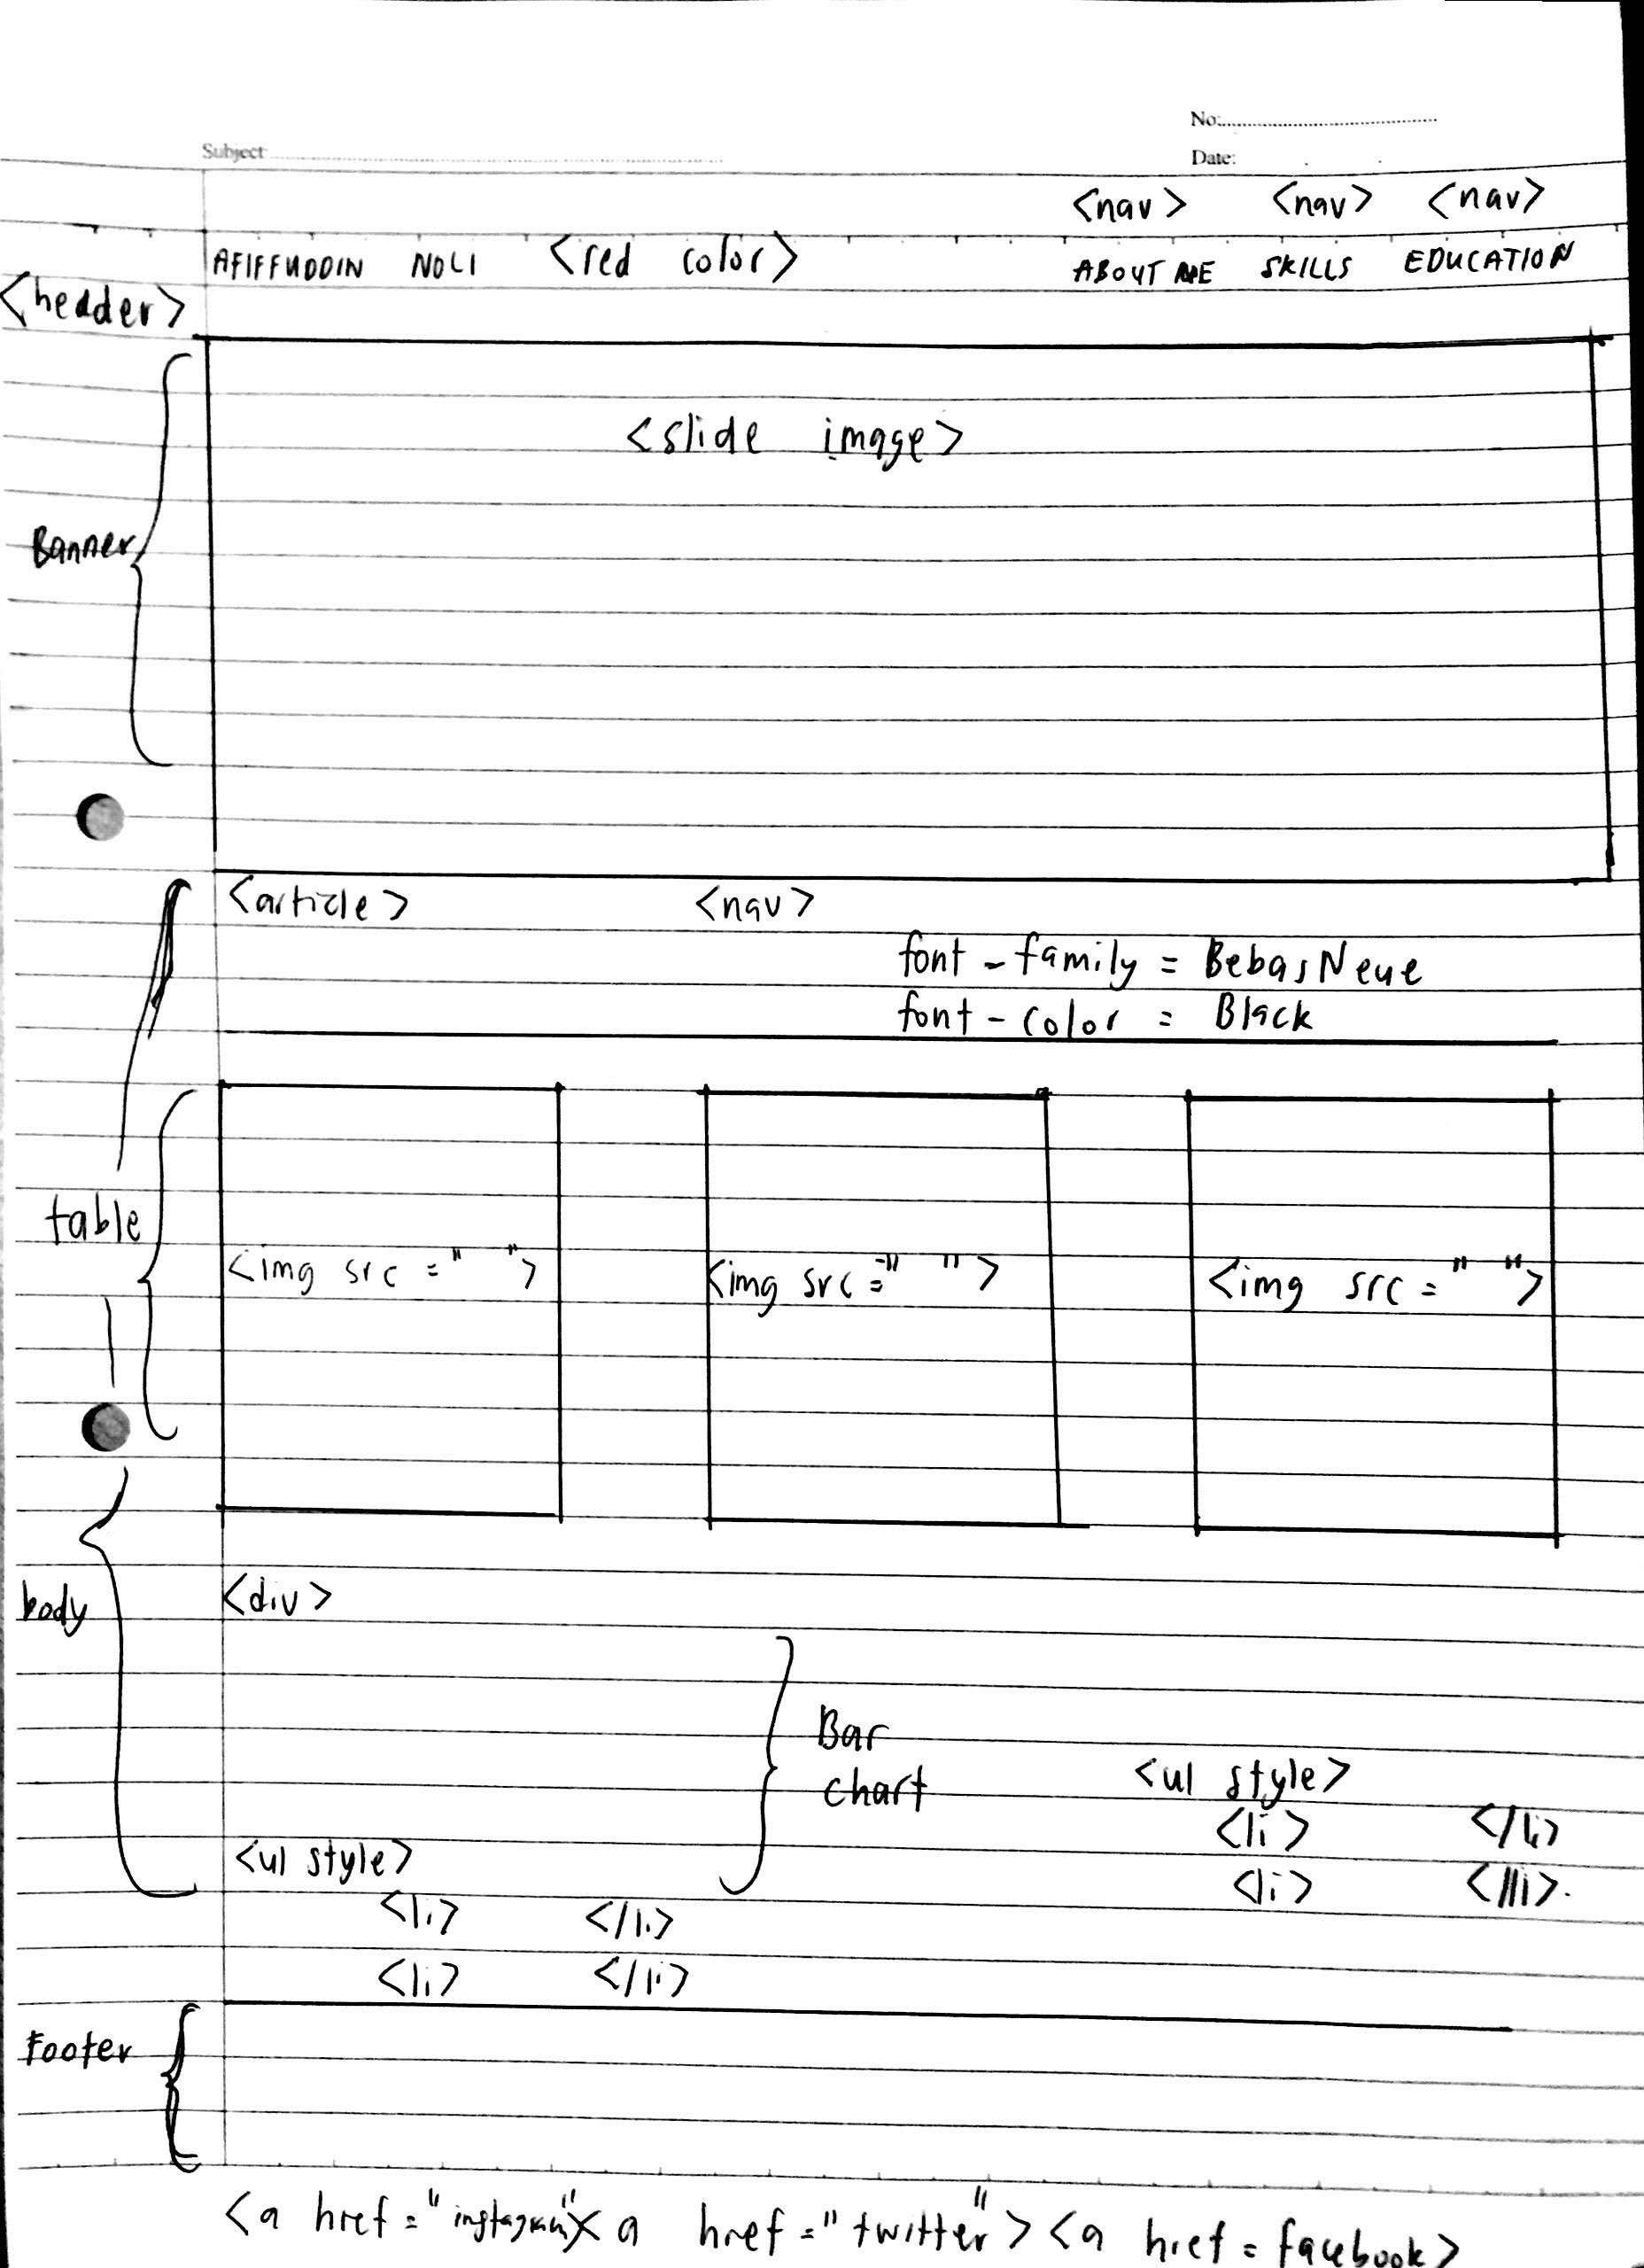 No:
Subject
Date:
<nav> <nav> <nav>
AFIFFUDDIN NOLI <red color> ABOUT ME SKILLS EDUCATION
<hedder>
<slide image>
Banner
<article> <nav>
font-family = BebasNeue
font-color = Black
table
<img src=" "> <img src=" "> <img src=" ">
<div>
body
Bar
chart
<ul style>
<li> </li>
<li> </li>
<ul style>
<li> </li>
<li> </li>
Footer
<a href="instagram"><a href="twitter"><a href=facebook>